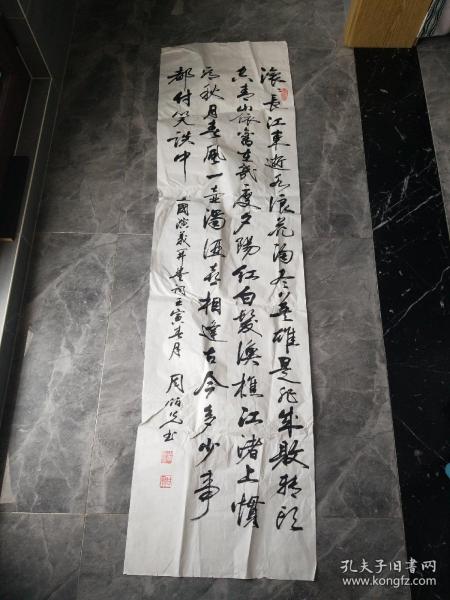 滚〻長江東逝水浪花淘尽英雄是非成敗转頭
空青山依舊在幾度夕陽红白髮漁樵江渚上慣
看秋月春風一壶濁酒喜相逢古今多少事
都付笑談中
三國演義开篇词壬寅春月 周书
孔夫子旧书网
www.kongfz.com